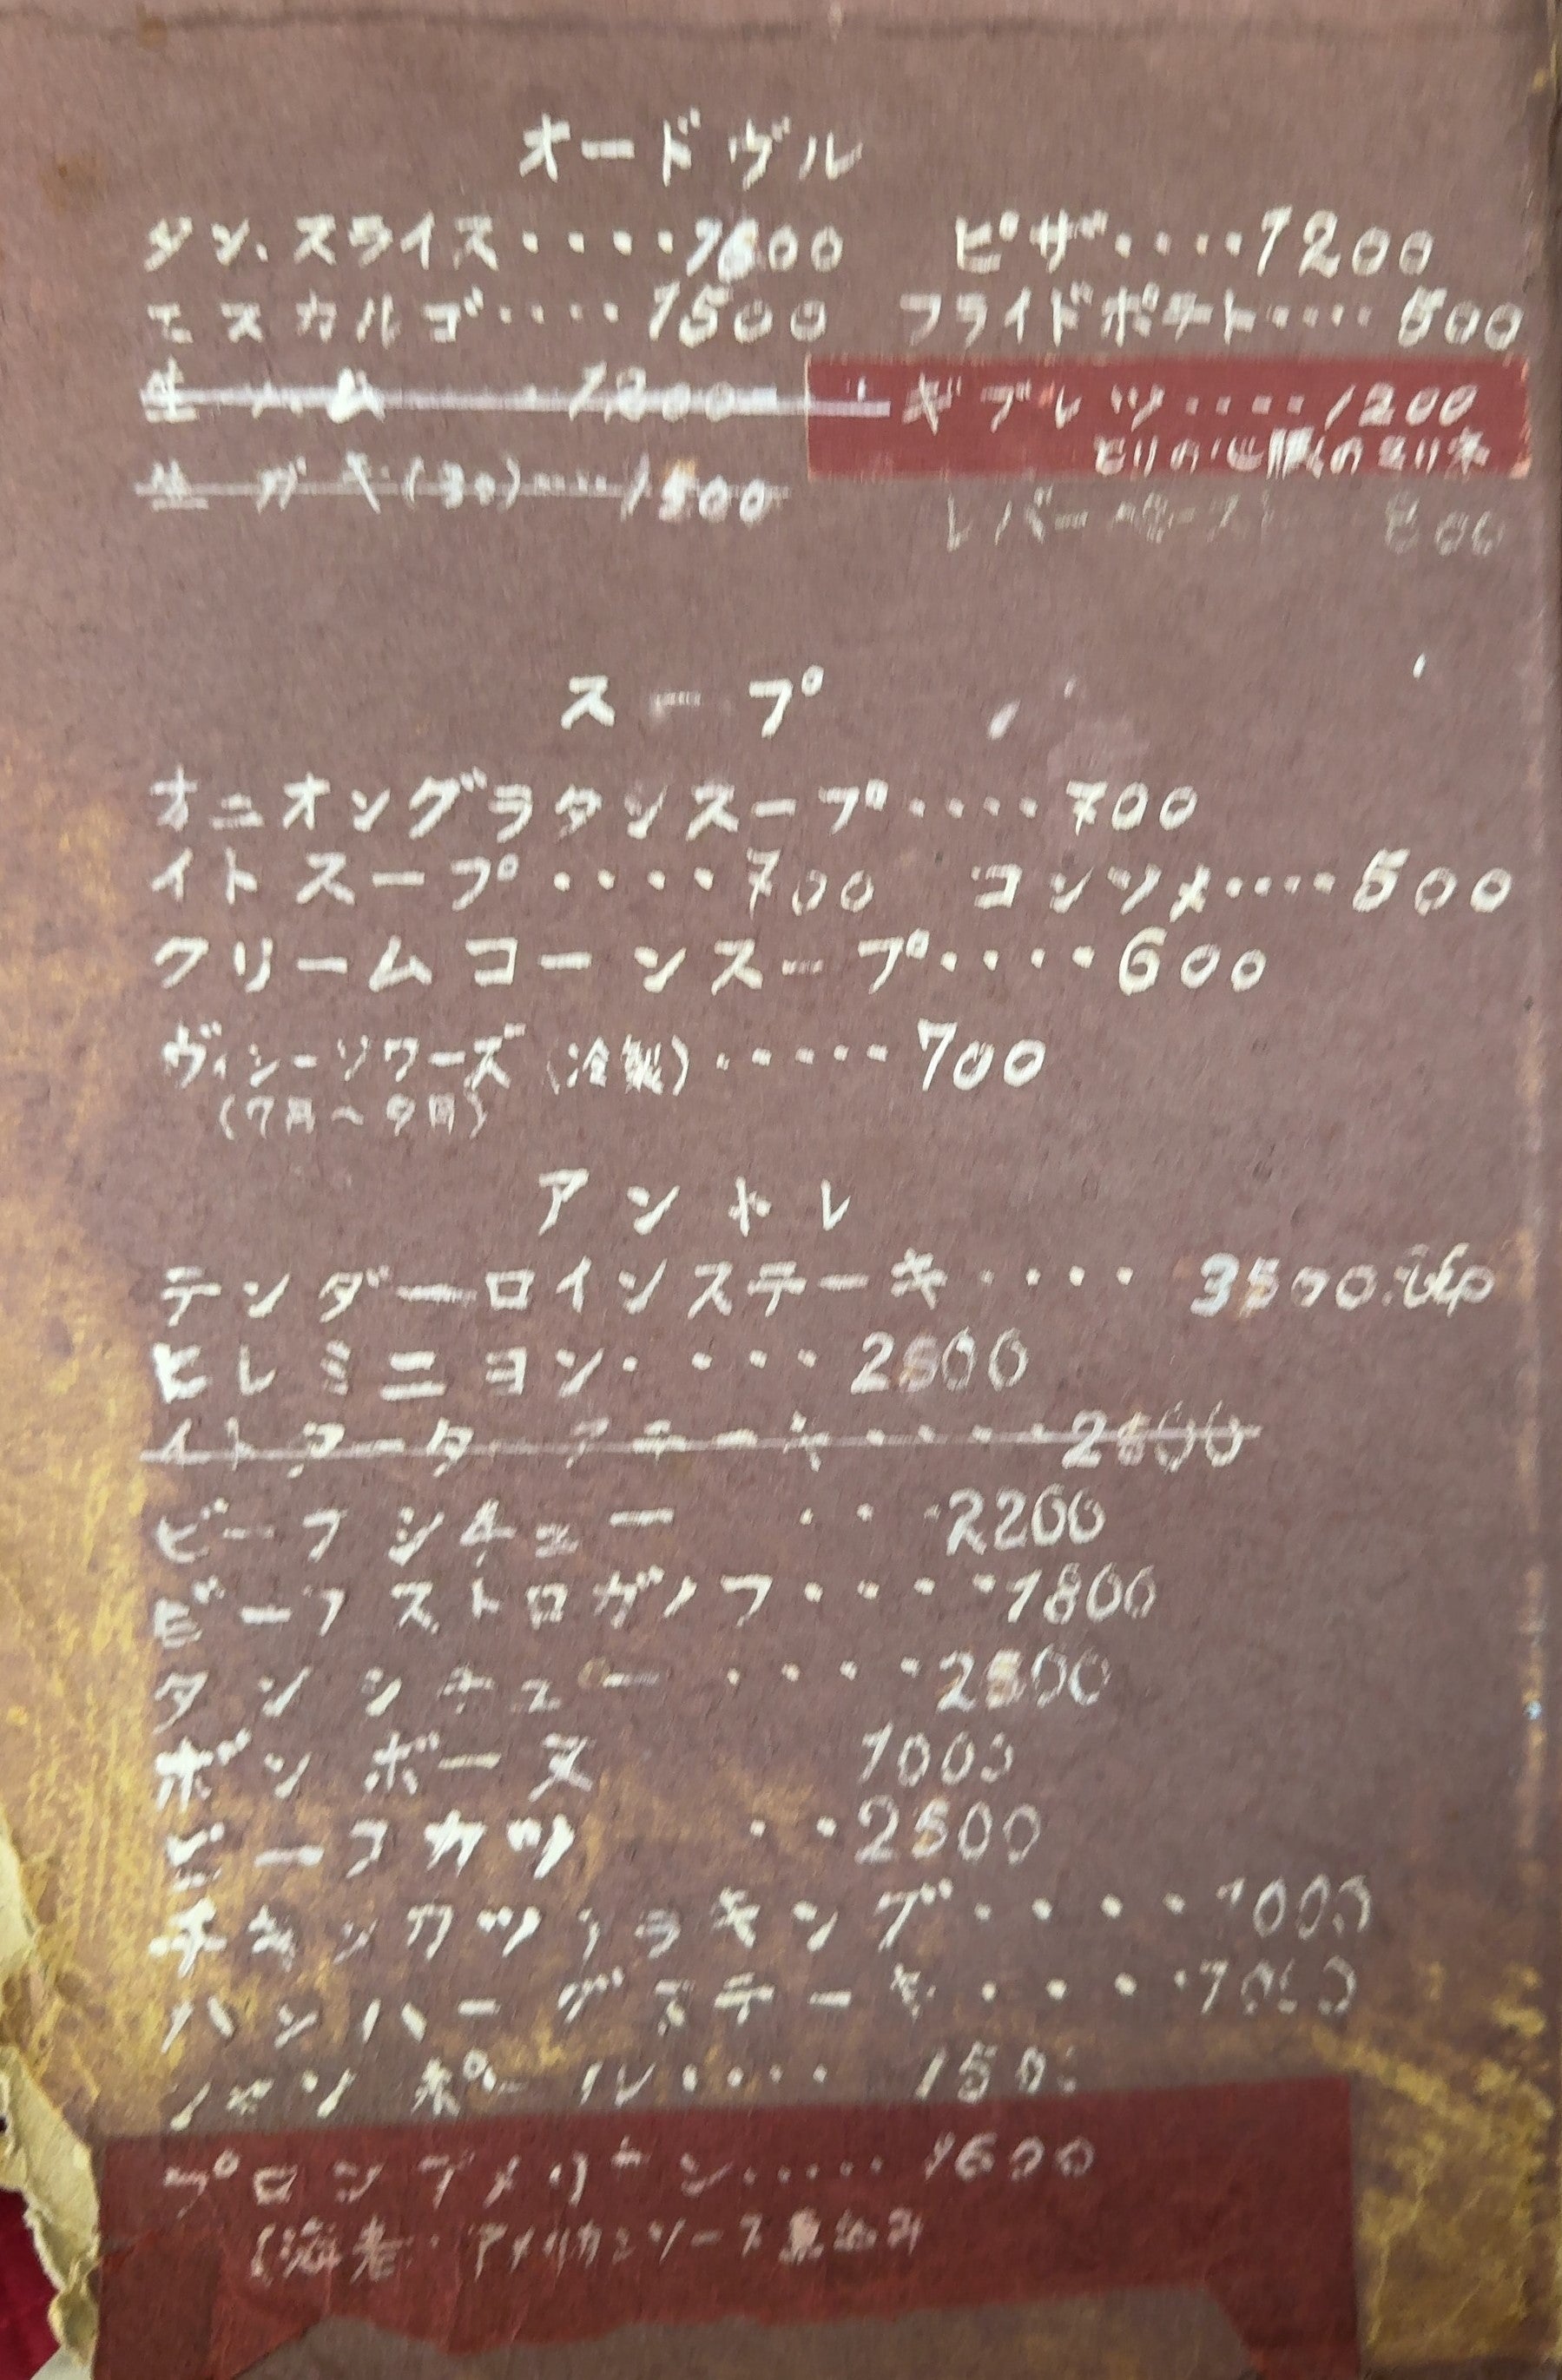 オードヴル
タン.スライス････1600
ピザ････1200
エスカルゴ････1500
フライドポテト････500
生ハム 1200
ギブレツ････1200
とりの心臓の
生ガキ(3コ)････1500
レバーペースト 800
スープ
オニオングラタンスープ････700
イトスープ････700
コンソメ････500
クリームコーンスープ････600
ヴィシーソワーズ(冷製)････700
(7月〜9月)
アントレ
テンダーロインステーキ････3500
ヒレミニヨン････2500
ビーフシチュー ･･･2200
ビーフストロガノフ････1800
タンシチュー ････2500
ボンボーヌ 1000
ビーフカツ ･･2500
チキンカツ キング････1000
ハンバーグステーキ････1000
ジャンポール････150
プロンアメリケン････1600
(海老･アメリカンソース煮込み